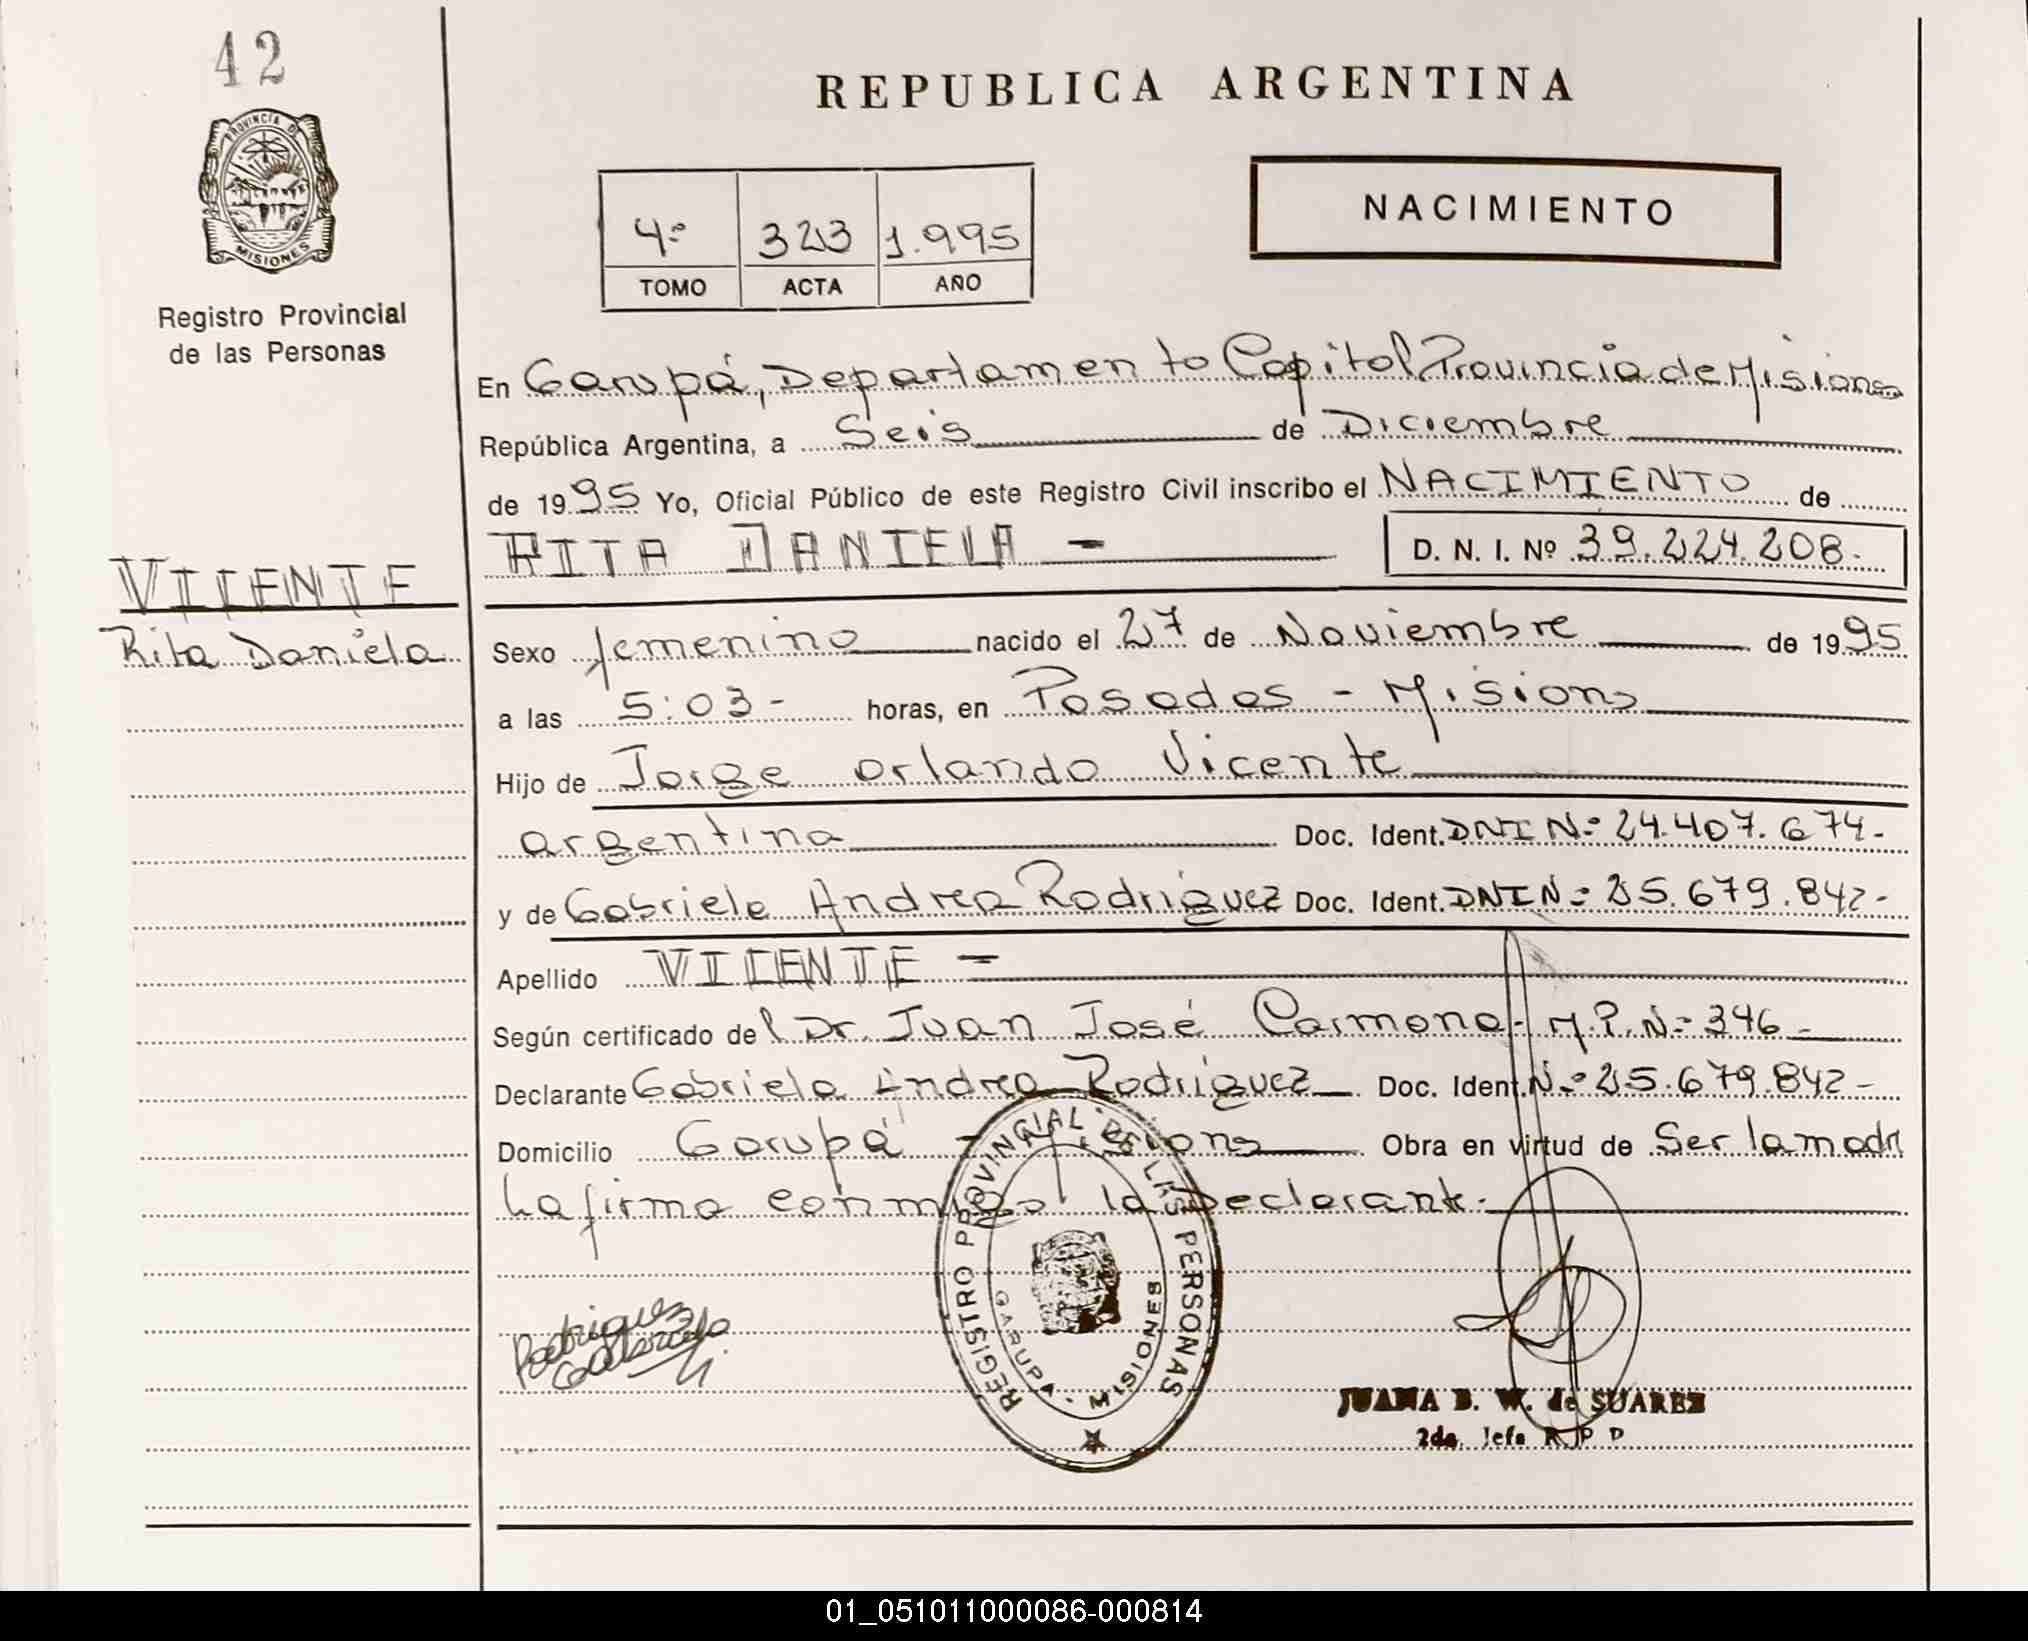 42
REPUBLICA ARGENTINA
PROVINCIA DE
MISIONES
Registro Provincial
de las Personas
4º 323 1.995
TOMO ACTA AÑO
NACIMIENTO
En Garupá, Departamento Capital Provincia de Misiones
República Argentina, a Seis de Diciembre
de 1995 Yo, Oficial Público de este Registro Civil inscribo el NACIMIENTO de
RITA DANIELA -
D. N. I. Nº 39.224.208-
VICENTE
Rita Daniela
Sexo femenino nacido el 27 de Noviembre de 1995
a las 5:03- horas, en Posadas - Misiones
Hijo de Jorge Orlando Vicente
argentina Doc. Ident. DNI Nº 24.407.674-
y de Gabriela Andrea Rodriguez Doc. Ident. DNI Nº 25.679.842-
Apellido VICENTE -
Según certificado del Dr. Juan José Carmona- M.P. Nº 346-
Declarante Gabriela Andrea Rodriguez Doc. Ident. Nº 25.679.842-
Domicilio Garupá - Misiones Obra en virtud de Ser la madre
La firma conmigo la Declarante.
Rodriguez
Gabriela
REGISTRO PROVINCIAL DE LAS PERSONAS
GARUPA - MISIONES
JUANA B. W. de SUAREZ
2da. Jefa R P D
01_051011000086-000814